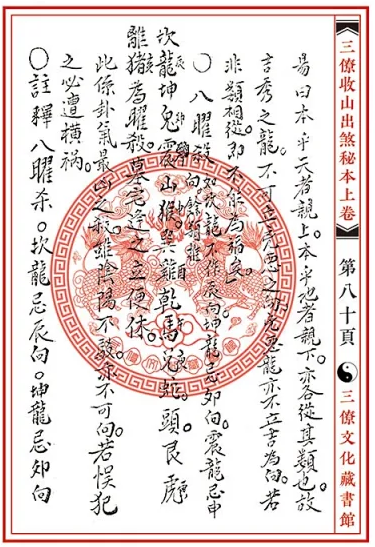 《三僚收山出煞秘本上卷》 第八十頁 三僚文化藏書館
易曰本乎天者親上。本乎地者親下。亦各從其類也。故
言秀之龍。不可立凶惡之向。凶惡龍亦不立吉向。若
非類相從。即不能為福矣。
〇八曜殺 如坎龍不作辰向。坤龍忌卯向。震龍忌申向餘類推
坎龍坤兔震山猴巽雞乾馬兌蛇頭艮虎
離猪為曜殺。墓宅逢之立便休。
此係卦氣最凶之殺。雖陰陽不駁。亦不可向。若悞犯
之必遭橫禍。
〇註釋八曜杀。坎龍忌辰向。坤龍忌卯向